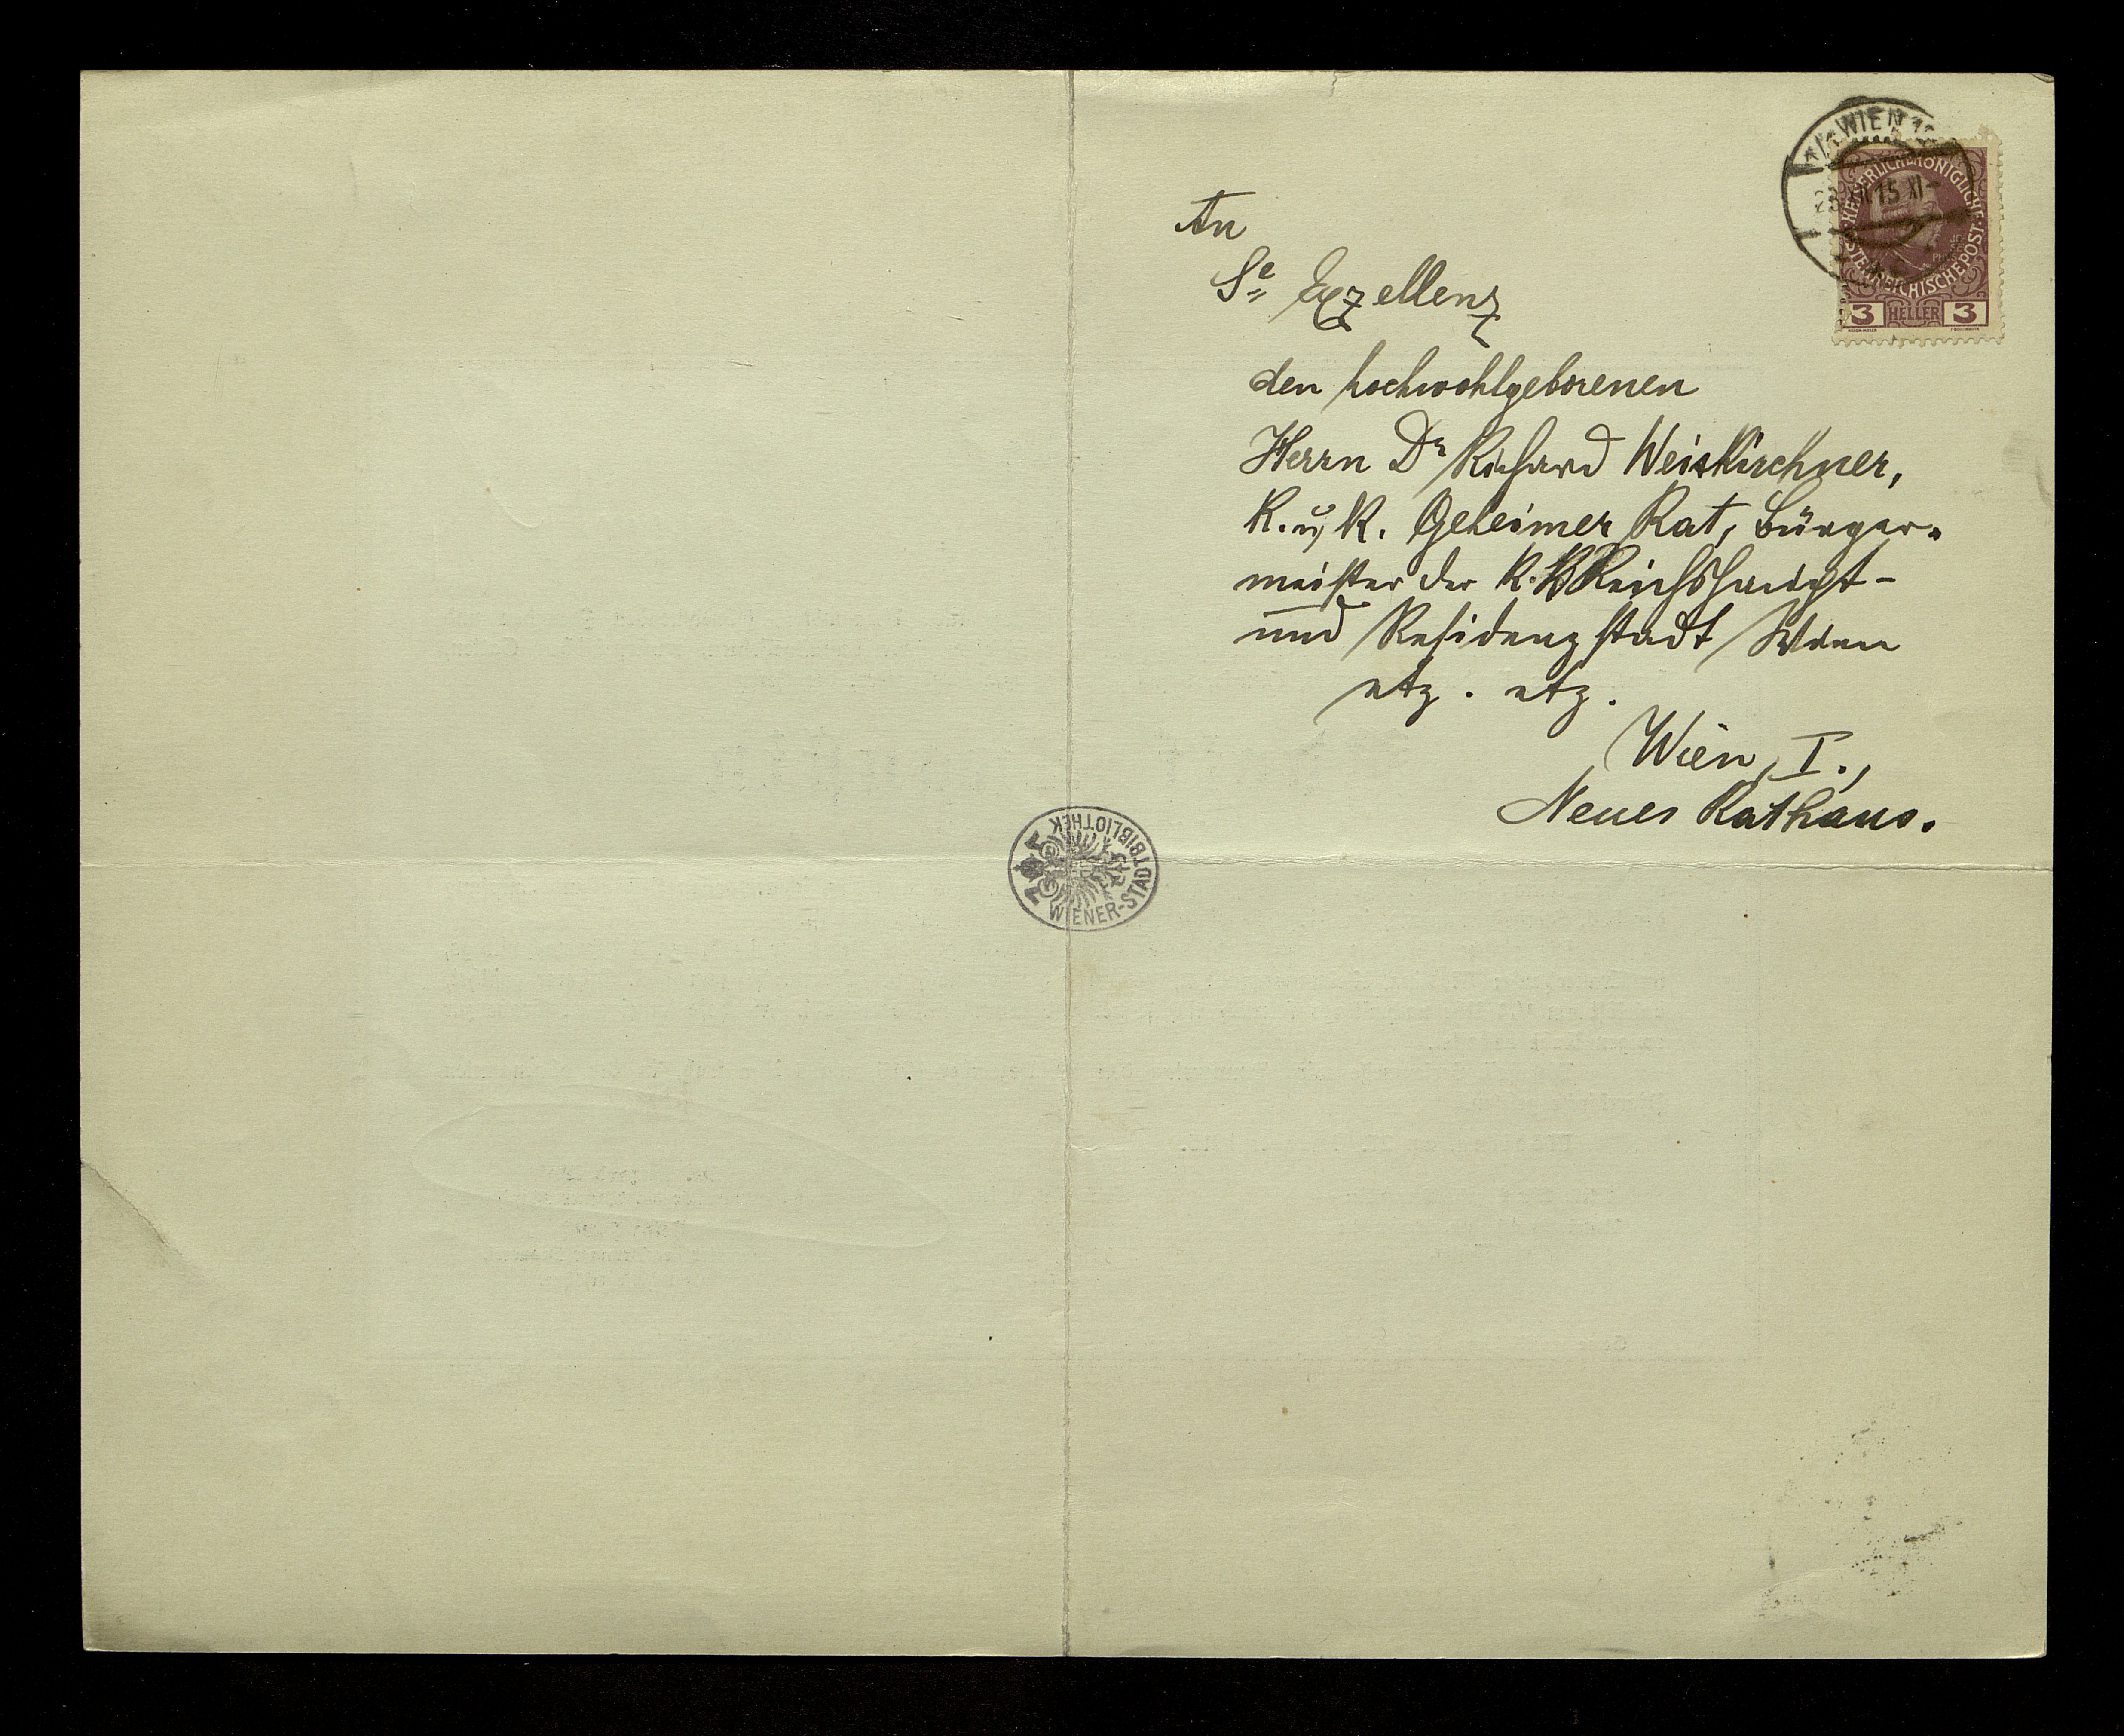 WIEN
15 XI-
KÖNIGLICHE
ÖSTERREICHISCHE POST
3 HELLER 3
An
Se Exzellenz
den hochwohlgeborenen
Herrn Dr Richard Weiskirchner,
K. u. K. Geheimer Rat, Bürger-
meister der K. K Reichshaupt-
und Residenzstadt Wien
etz. etz.
Wien, I.,
Neues Rathaus.
WIENER-STADTBIBLIOTHEK